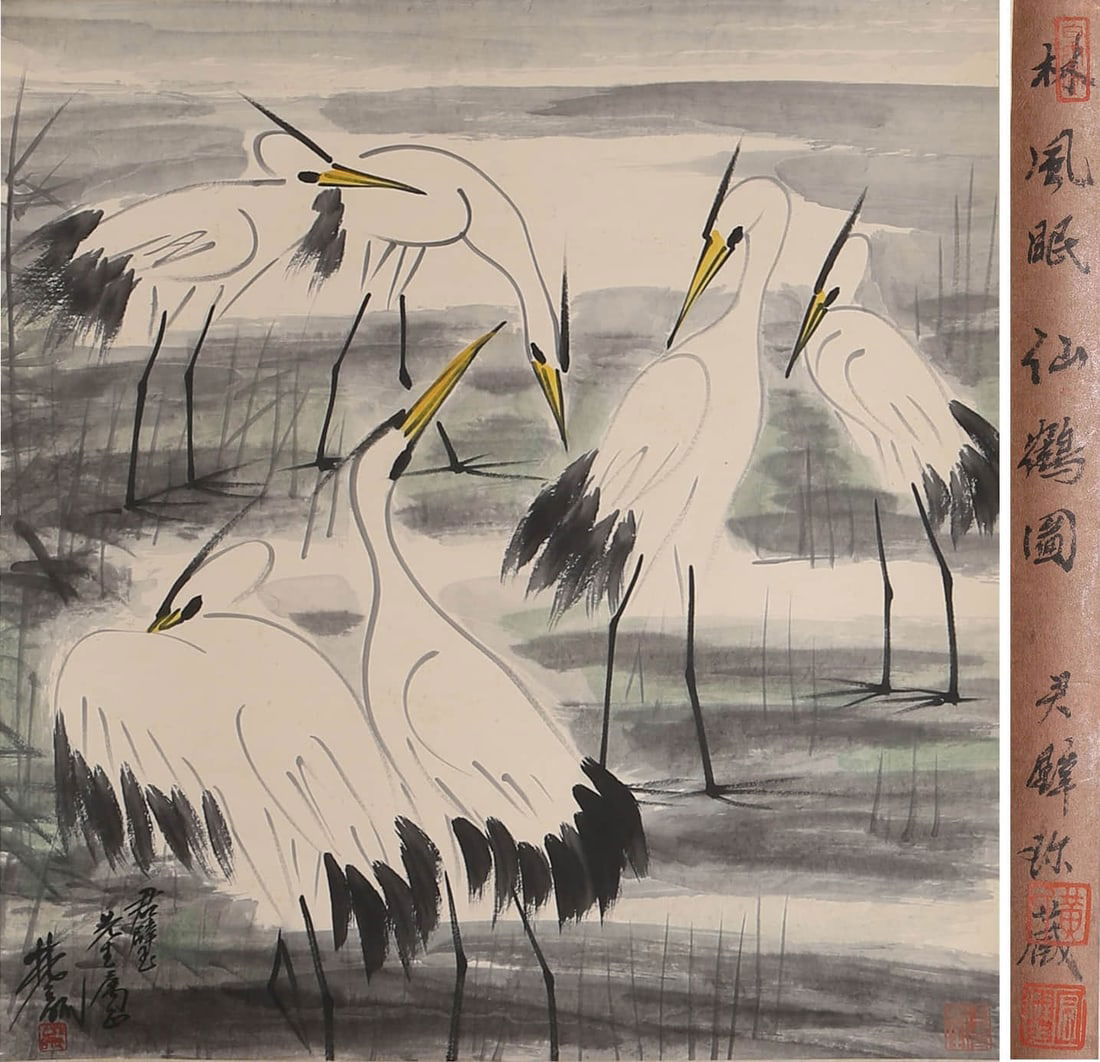 林風眠仙鶴圖 君璧珎藏
君璧
先生屬正
林風眠